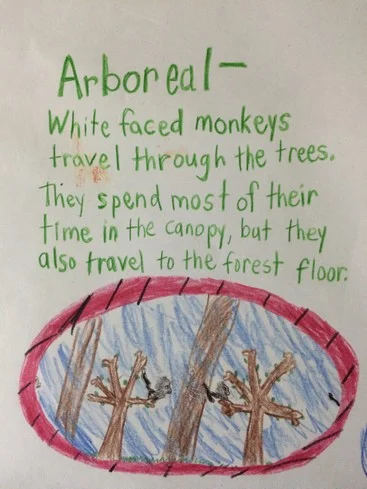 Arboreal-
White faced monkeys
travel through the trees.
They spend most of their
time in the canopy, but they
also travel to the forest floor.